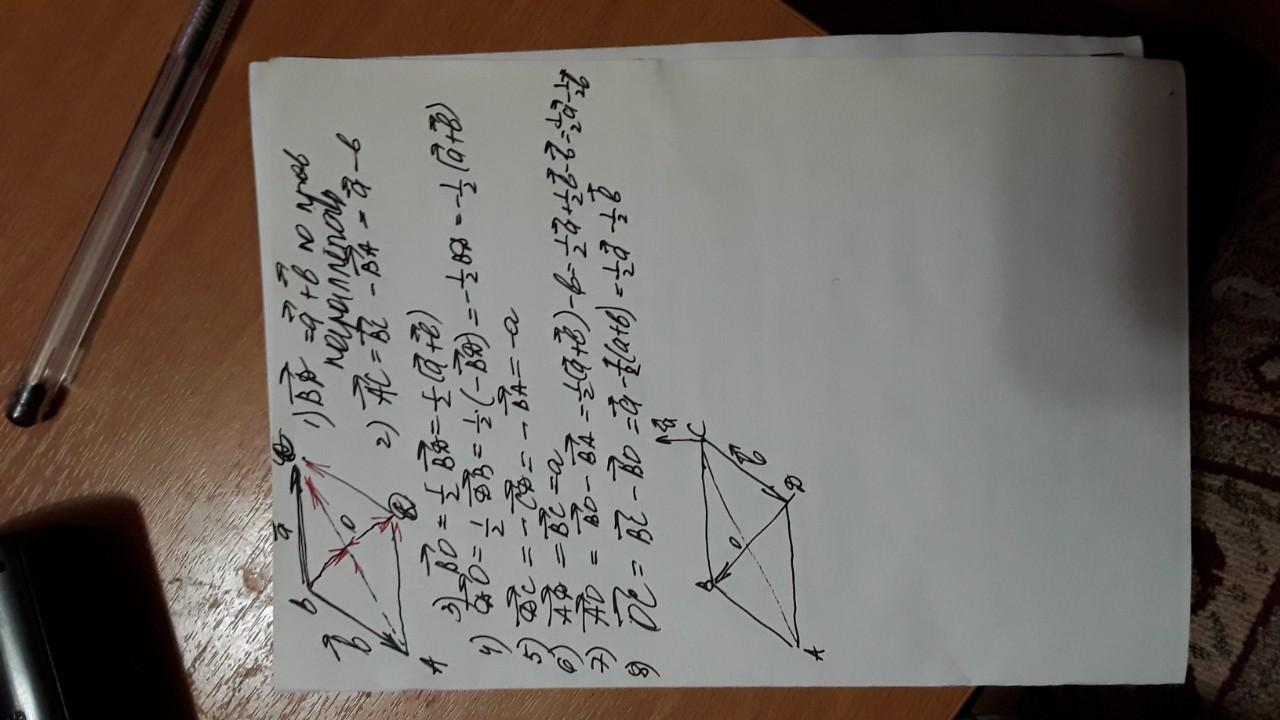 1) BD = a + b по прав
параллелогр
2) AC = BC - BA = a - b
3) BO = 1/2 BD = 1/2 (a + b)
4) DO = 1/2 DB = 1/2 · (-BD) = -1/2 BD = -1/2 (a+b)
5) DC = -CD = -BA = -a
6) AD = BC = a
7) AO = BO - BA = 1/2(a+b) - b = 1/2 a + 1/2 b - b = 1/2 a - 1/2 b
8) OC = BC - BO = a - 1/2(a+b) = 1/2 a - 1/2 b
a
B
b
O
A
D
B
O
A
D
C
a
b